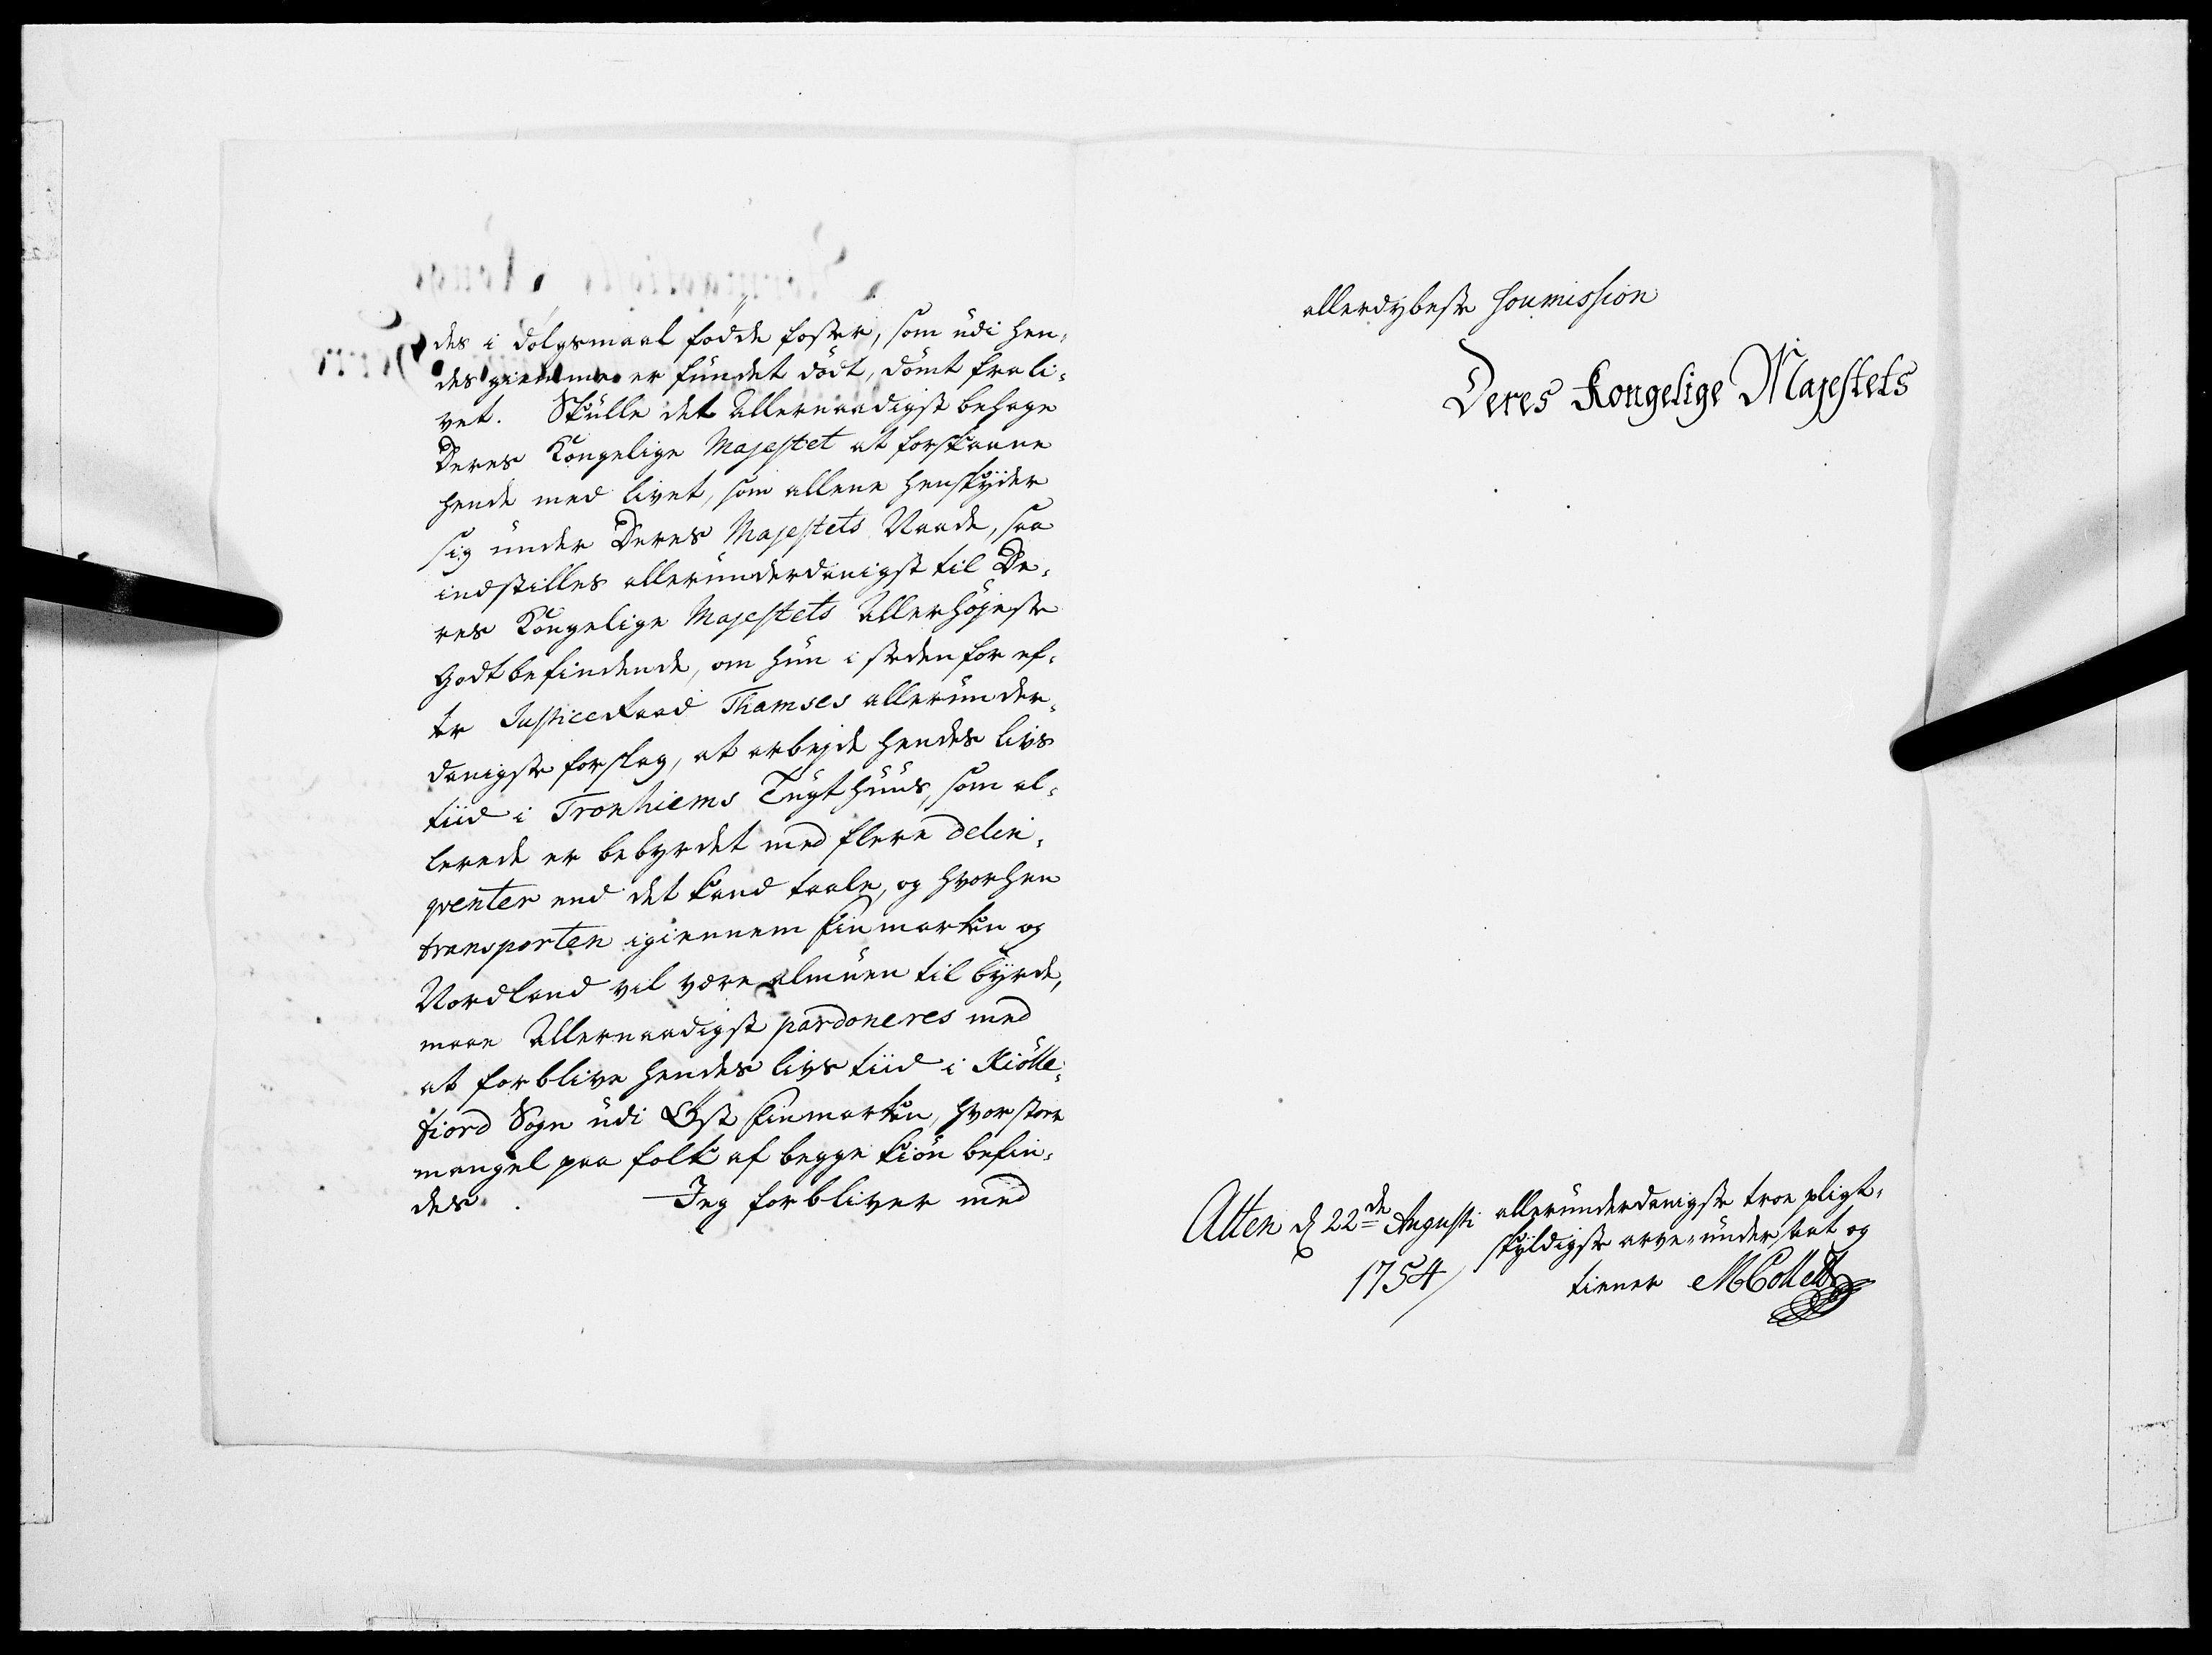 des i dølgsmaal födde foster, som udi hen-
des giemme er fundet dödt, dömt fra li-
vet. Skulle det Allernaadigst behage
Deres Kongelige Majestet at forskaane
hende med livet, som allene henskyder
sig under Deres Majestets Naade, saa
indstilles allerunderdanigst til De-
res Kongelige Majestets Allerhöjeste
Godtbefindende, om hun i steden for ef-
ter Justice Raad Thamses allerunder-
danigste forslag, at arbejde hendes livs
tiid i Tronhiems Tugthuus, som al-
lerede er bebyrdet med flere delin-
qventer end det kand taale, og hvorhen
transporten igiennem Finmarken og
Nordland vil være almuen til byrde,
maae Allernaadigst pardoneres med
at forblive hendes livs tiid i Kiölle-
fiord Sogn udi Øst Finmarken, hvor stor
mangel paa folk af begge kiön befin-
des. Jeg forbliver med
allerdybeste soumission
Deres Kongelige Majestets
Alten d 22de Augusti
1754
allerunderdanigste troe pligt-
skyldigste arve-understaat og
tiener MCollett